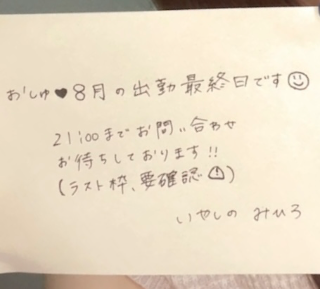 おしゅ♥8月の出勤最終日です☺
21:00までお問い合わせ
お待ちしております!!
(ラスト枠、要確認⚠)
いやしの みひろ